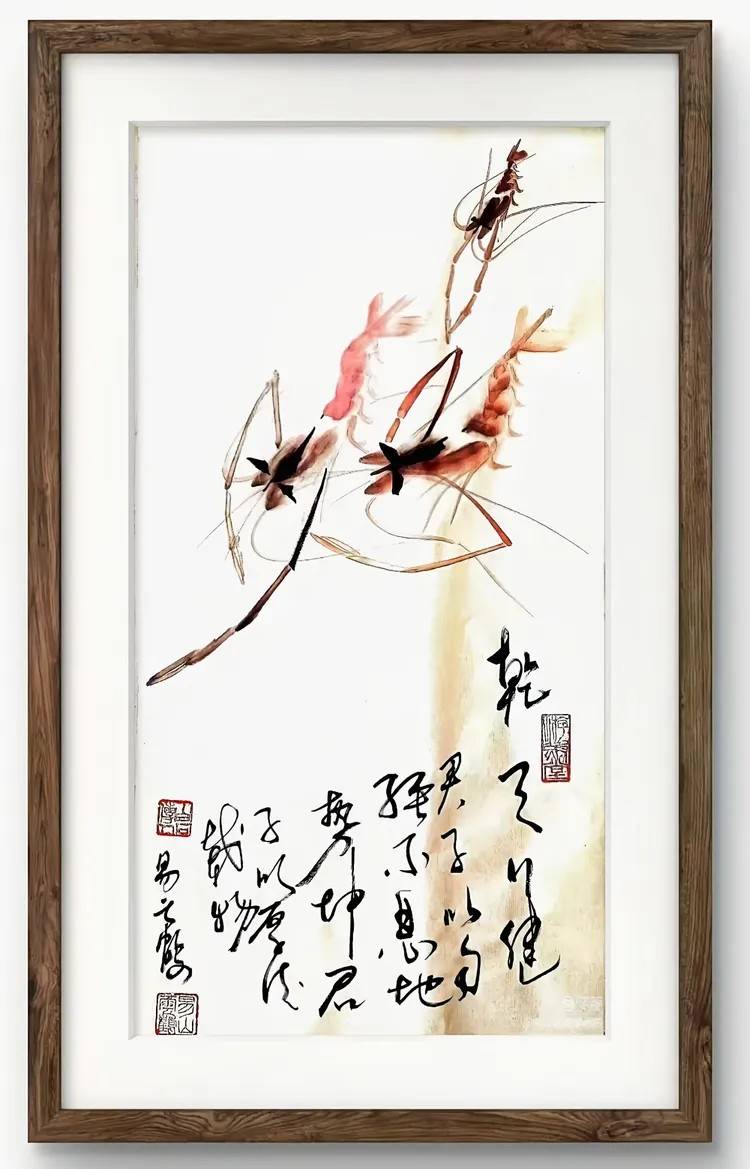 乾
天行健
君子以自
强不息地
势坤君
子以厚德
载物
易云鹤